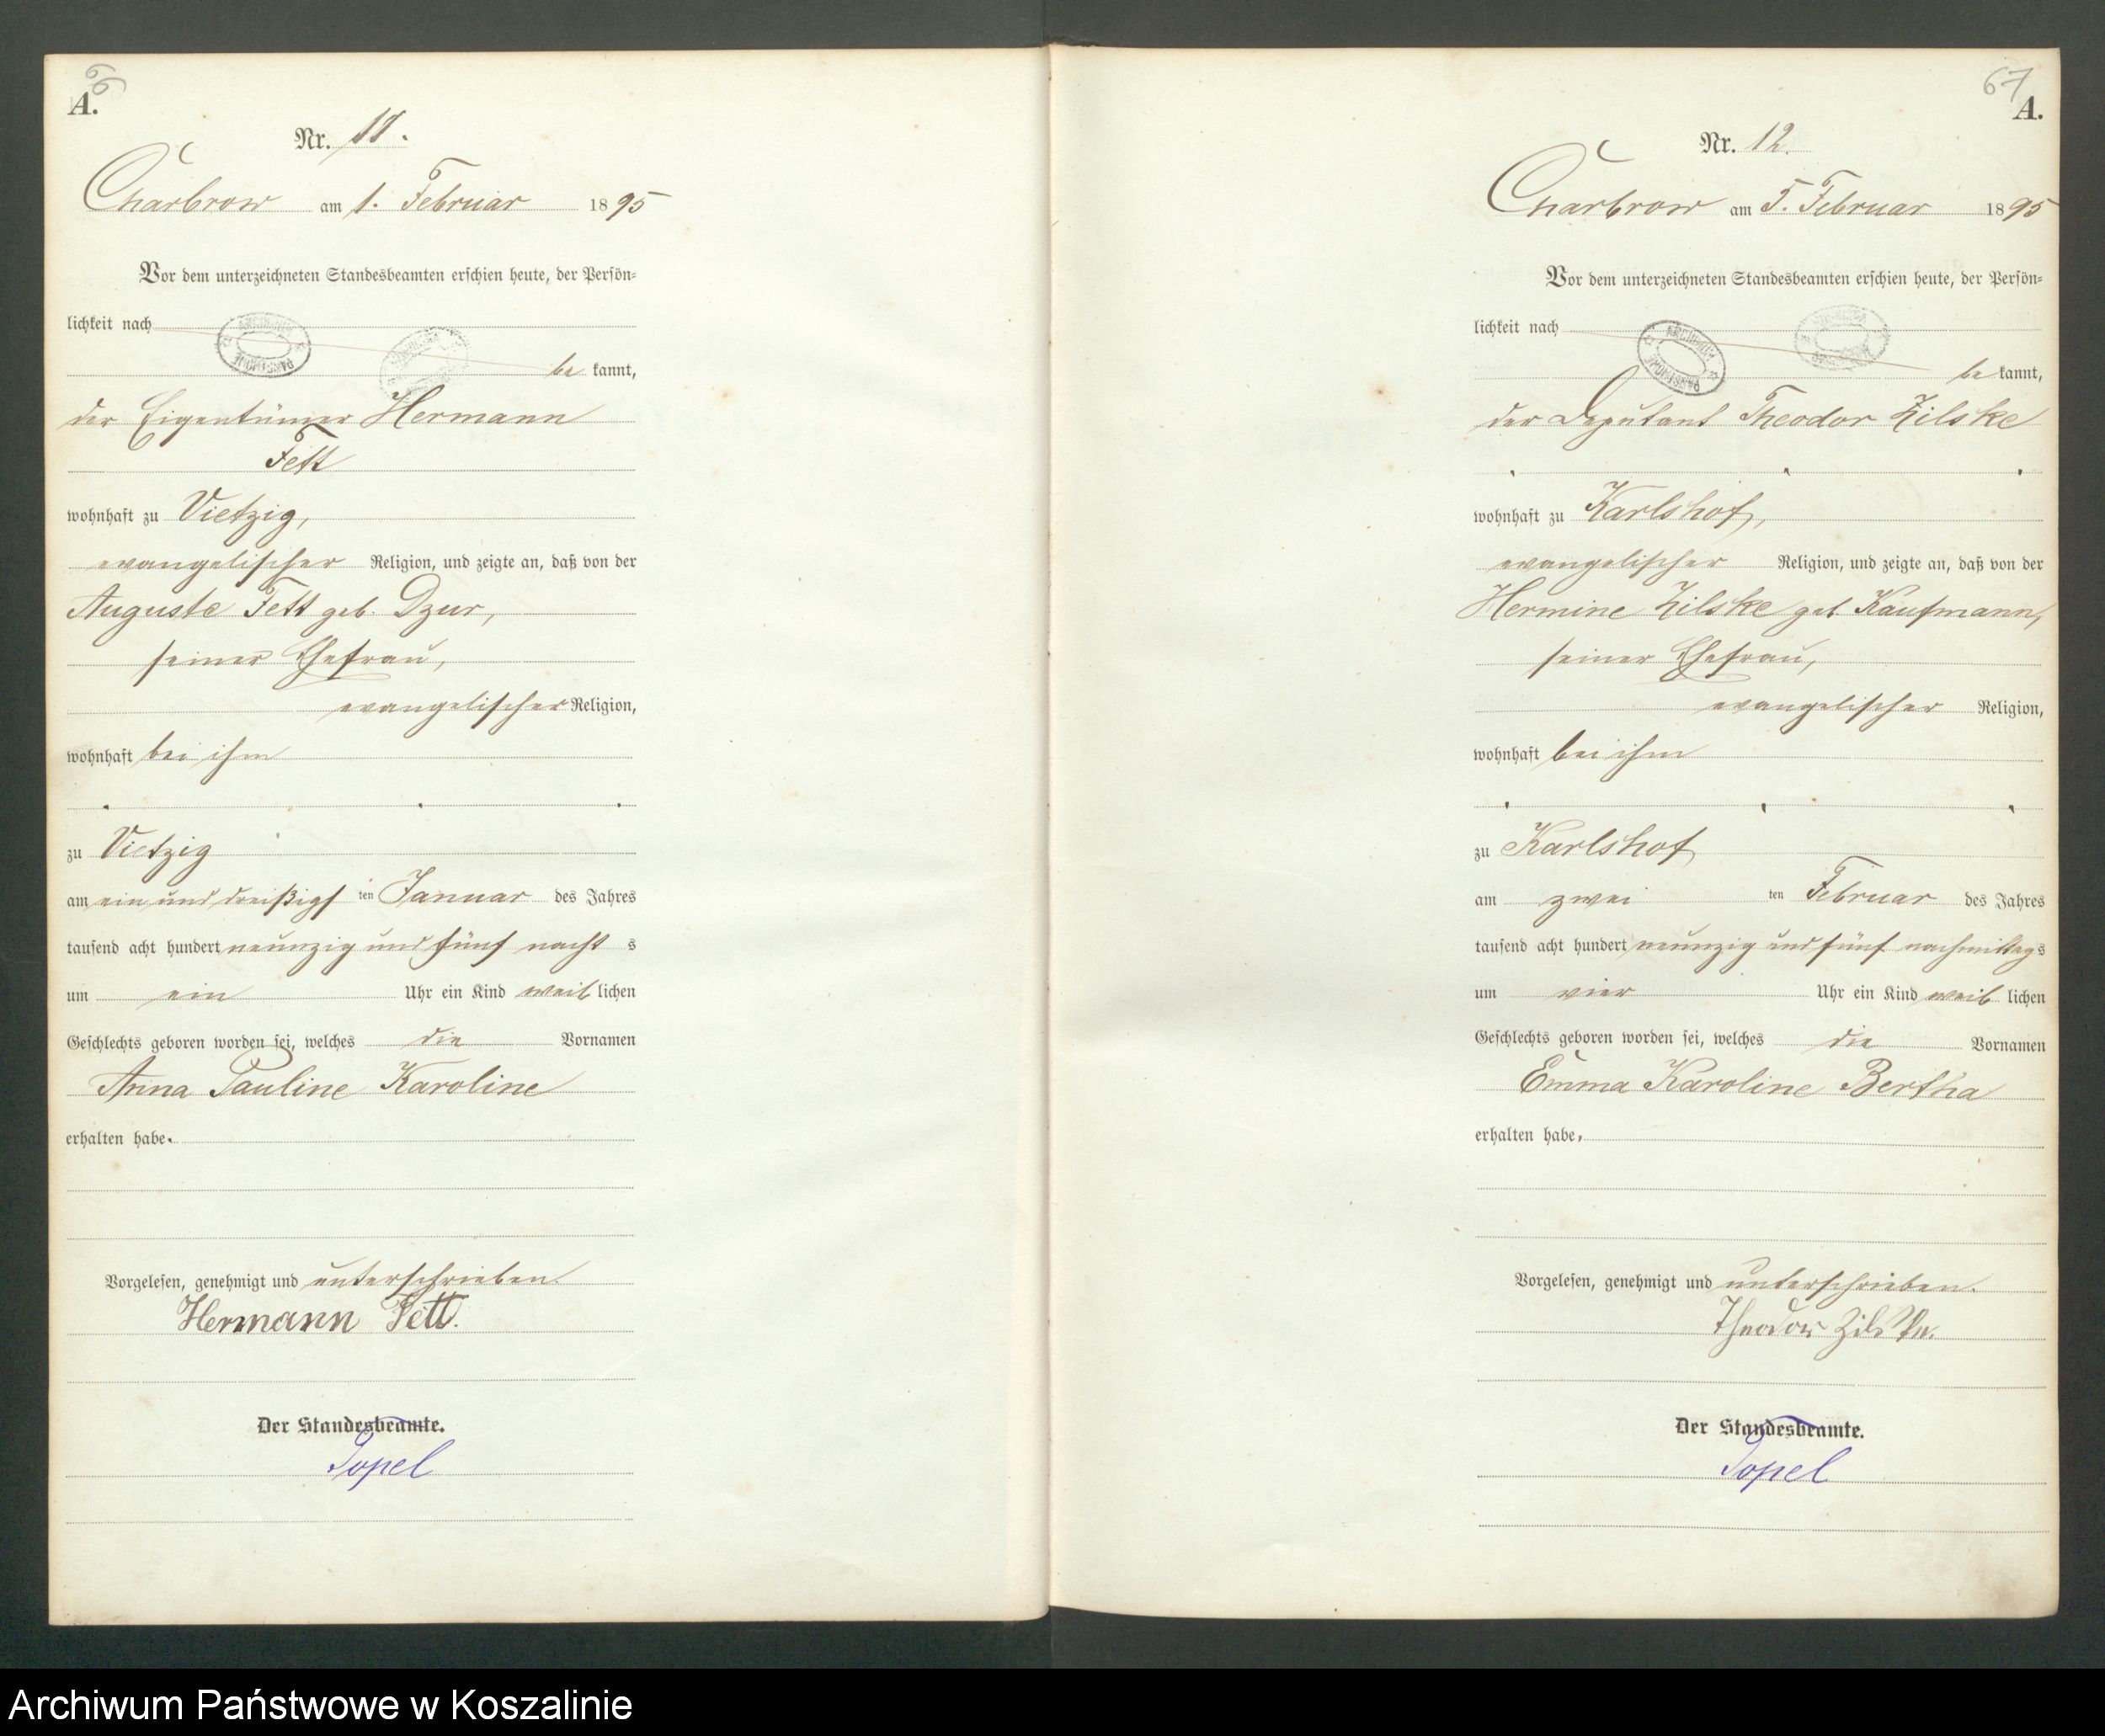 66
A.
Nr. 11.
Charbrow am 1. Februar 1895
Vor dem unterzeichneten Standesbeamten erschien heute, der Persön-
lichkeit nach
be kannt,
der Eigentümer Hermann
Fett
wohnhaft zu Vietzig,
evangelischer Religion, und zeigte an, daß von der
Auguste Fett geb. Dzur,
seiner Ehefrau,
evangelischer Religion,
wohnhaft bei ihm
zu Vietzig
am ein und dreißigs ten Januar des Jahres
tausend acht hundert neunzig und fünf nacht s
um ein Uhr ein Kind weib lichen
Geschlechts geboren worden sei, welches die Vornamen
Anna Pauline Karoline
erhalten habe.
Vorgelesen, genehmigt und unterschrieben.
Hermann Fett.
Der Standesbeamte.
Popel
67
A.
Nr. 12.
Charbrow am 5. Februar 1895
Vor dem unterzeichneten Standesbeamten erschien heute, der Persön-
lichkeit nach
be kannt,
der Deputant Theodor Zilske
wohnhaft zu Karlshof,
evangelischer Religion, und zeigte an, daß von der
Hermine Zilske geb. Kaufmann,
seiner Ehefrau,
evangelischer Religion,
wohnhaft bei ihm
zu Karlshof
am zwei ten Februar des Jahres
tausend acht hundert neunzig und fünf nachmittag s
um vier Uhr ein Kind weib lichen
Geschlechts geboren worden sei, welches die Vornamen
Emma Karoline Bertha
erhalten habe.
Vorgelesen, genehmigt und unterschrieben.
Theodor Zilske.
Der Standesbeamte.
Popel
Archiwum Państwowe w Koszalinie